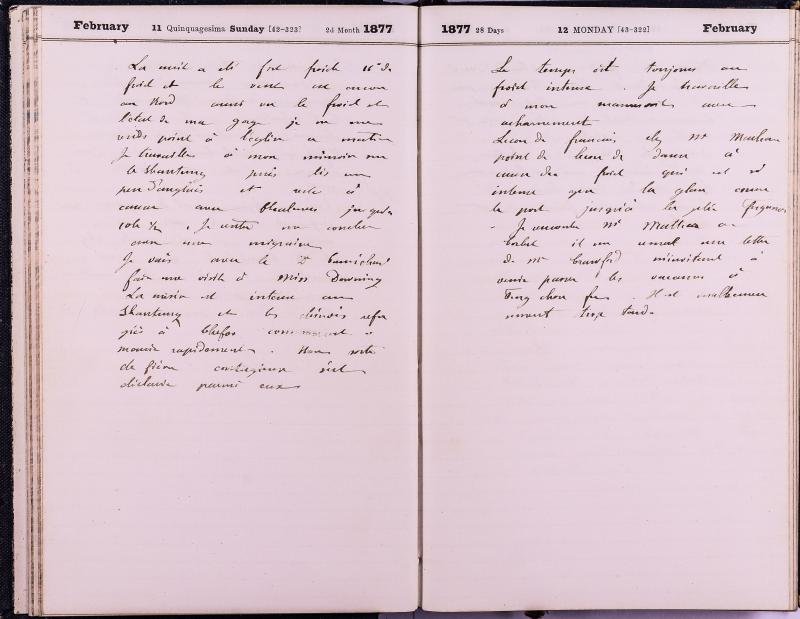 February 11 Quinquagesima Sunday [42-323] 2d Month 1877
La nuit a été fort froide 16° de
froid et le vent est encore
au Nord aussi vu le froid et
l'état de ma gorge je ne me
rends point à l'église ce matin
Je travaille à mon mémoire sur
le Shantung puis lis un
peu d'anglais et reste à
causer avec jusqu'à
10h ½. Je rentre me coucher
avec une migraine
Je vais avec le Dr Carmichael
faire une visite à Miss Downing
La misère est intense au
Shantung et les chinois refu
giés à Chefoo commencent à
mourir rapidement. Une sorte
de fièvre contagieuse s'est
déclarée parmi eux
1877 28 Days 12 MONDAY [43-322] February
Le temps est toujours au
froid intense. Je travaille
à mon manuscrit avec
acharnement
Leçon de français chez Mr
point de leçon de danse à
cause du froid qui est si
intense que la glace couvre
le port jusqu'à
- Je rencontre Mr au
il me remet une lettre
de Mr Crawford m'invitant à
venir passer les vacances à
Tung chow foo. Il est malheureu
sement trop tard.